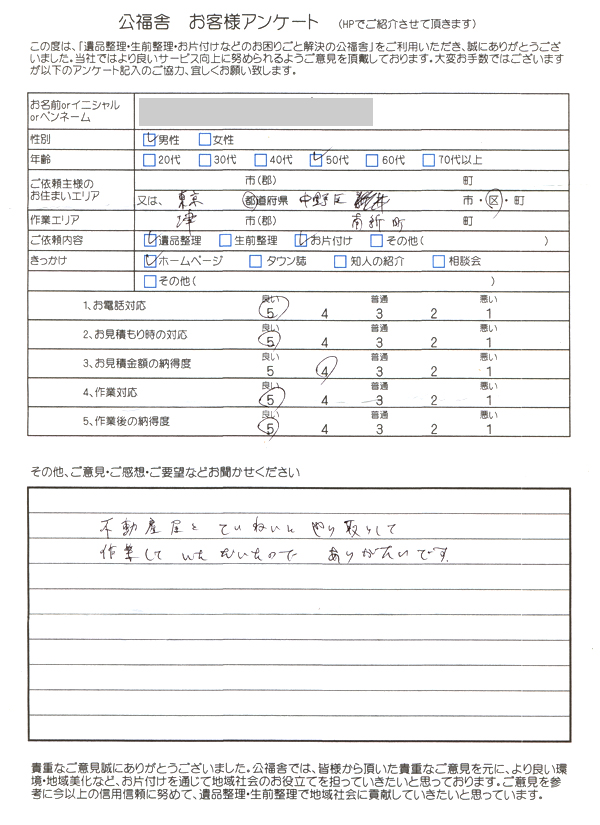 公福舎 お客様アンケート (HPでご紹介させて頂きます)
この度は、「遺品整理・生前整理・お片付けなどのお困りごと解決の公福舎」をご利用いただき、誠にありがとうござ
いました。当社ではより良いサービス向上に努められるようご意見を頂戴しております。大変お手数ではございます
が以下のアンケート記入のご協力、宜しくお願い致します。
お名前orイニシャル
orペンネーム
性別 男性 女性
年齢 20代 30代 40代 50代 60代 70代以上
ご依頼主様の 市(郡) 町
お住まいエリア 又は、 東京 都道府県 中野区 新井 市・区・町
作業エリア 津 市(郡) 南新町 町
ご依頼内容 遺品整理 生前整理 お片付け その他( )
きっかけ ホームページ タウン誌 知人の紹介 相談会
その他( )
良い 普通 悪い
1、お電話対応 5 4 3 2 1
良い 普通 悪い
2、お見積もり時の対応 5 4 3 2 1
良い 普通 悪い
3、お見積金額の納得度 5 4 3 2 1
良い 普通 悪い
4、作業対応 5 4 3 2 1
良い 普通 悪い
5、作業後の納得度 5 4 3 2 1
その他、ご意見・ご感想・ご要望などお聞かせください
不動産屋と ていねいに やり取りして
作業して いただいたので ありがたいです
貴重なご意見誠にありがとうございました。公福舎では、皆様から頂いた貴重なご意見を元に、より良い環
境・地域美化など、お片付けを通じて地域社会のお役立てを担っていきたいと思っております。ご意見を参
考に今以上の信用信頼に努めて、遺品整理・生前整理で地域社会に貢献していきたいと思っています。